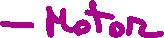 - Motor